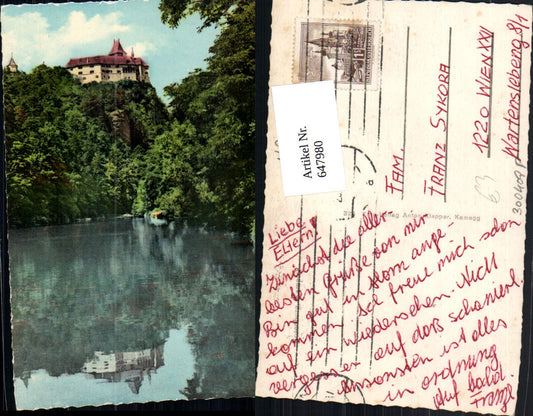 Artikel Nr.
647980
FAM.
FRANZ SYKORA
1220 WIEN XXII
Wartenslebeng. 8/1
300409
Kamegg
Liebe
Eltern!
Zunächst die aller-
besten Grüße von mir
Bin gut in Horn ange-
kommen. Ich freue mich schon
auf ein wiedersehen. Nicht
vergessen auf das
Ansonsten ist alles
in ordnung
Auf bald
Franz